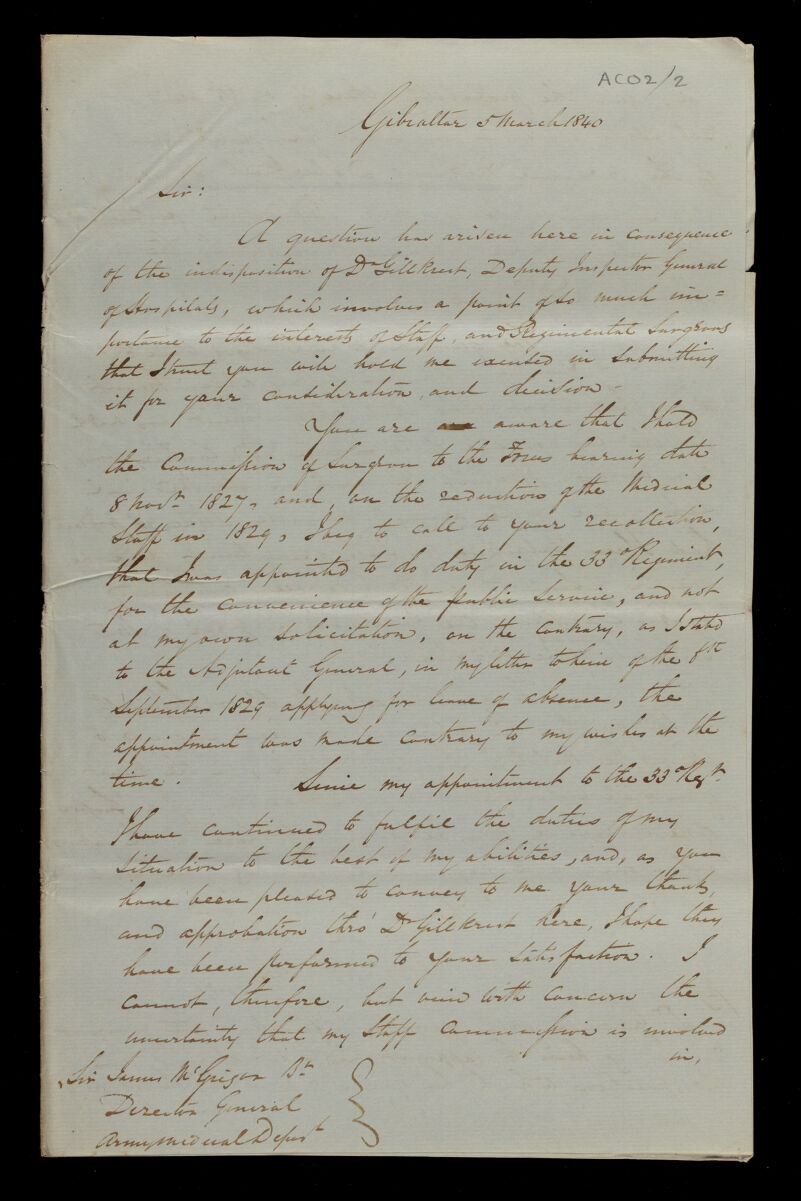 ACO2/2
Gibraltar 5 March 1840
Sir:
A question has arisen here in consequence
of the indisposition of Dr Gillkrest, Deputy Inspector General
of Hospitals, which involves a point of so much im=
portance to the interests of Staff, and Regimental Surgeons
that I trust you will hold me excused in submitting
it for your consideration, and decision –
You are aware that I hold
the Commission of Surgeon to the Forces bearing date
8 Novr 1827, and, on the reduction of the Medical
Staff in 1829, I beg to call to your recollection,
that I was appointed to do duty in the 33d Regiment,
for the convenience of the public service, and not
at my own solicitation, on the contrary, as I stated
to the Adjutant General, in my letter to him of the 8th
September 1829 applying for leave of absence, the
appointment was made contrary to my wishes at the
time. Since my appointment to the 33d Regt.
I have continued to fulfil the duties of my
situation to the best of my abilities, and, as you
have been pleased to convey to me your thanks,
and approbation thro' Dr Gillkrest here, I hope they
have been performed to your satisfaction. I
cannot, therefore, but view with concern the
uncertainty that my Staff Commission is involved
in,
Sir James McGrigor Bt
Director General
Army Medical Depart